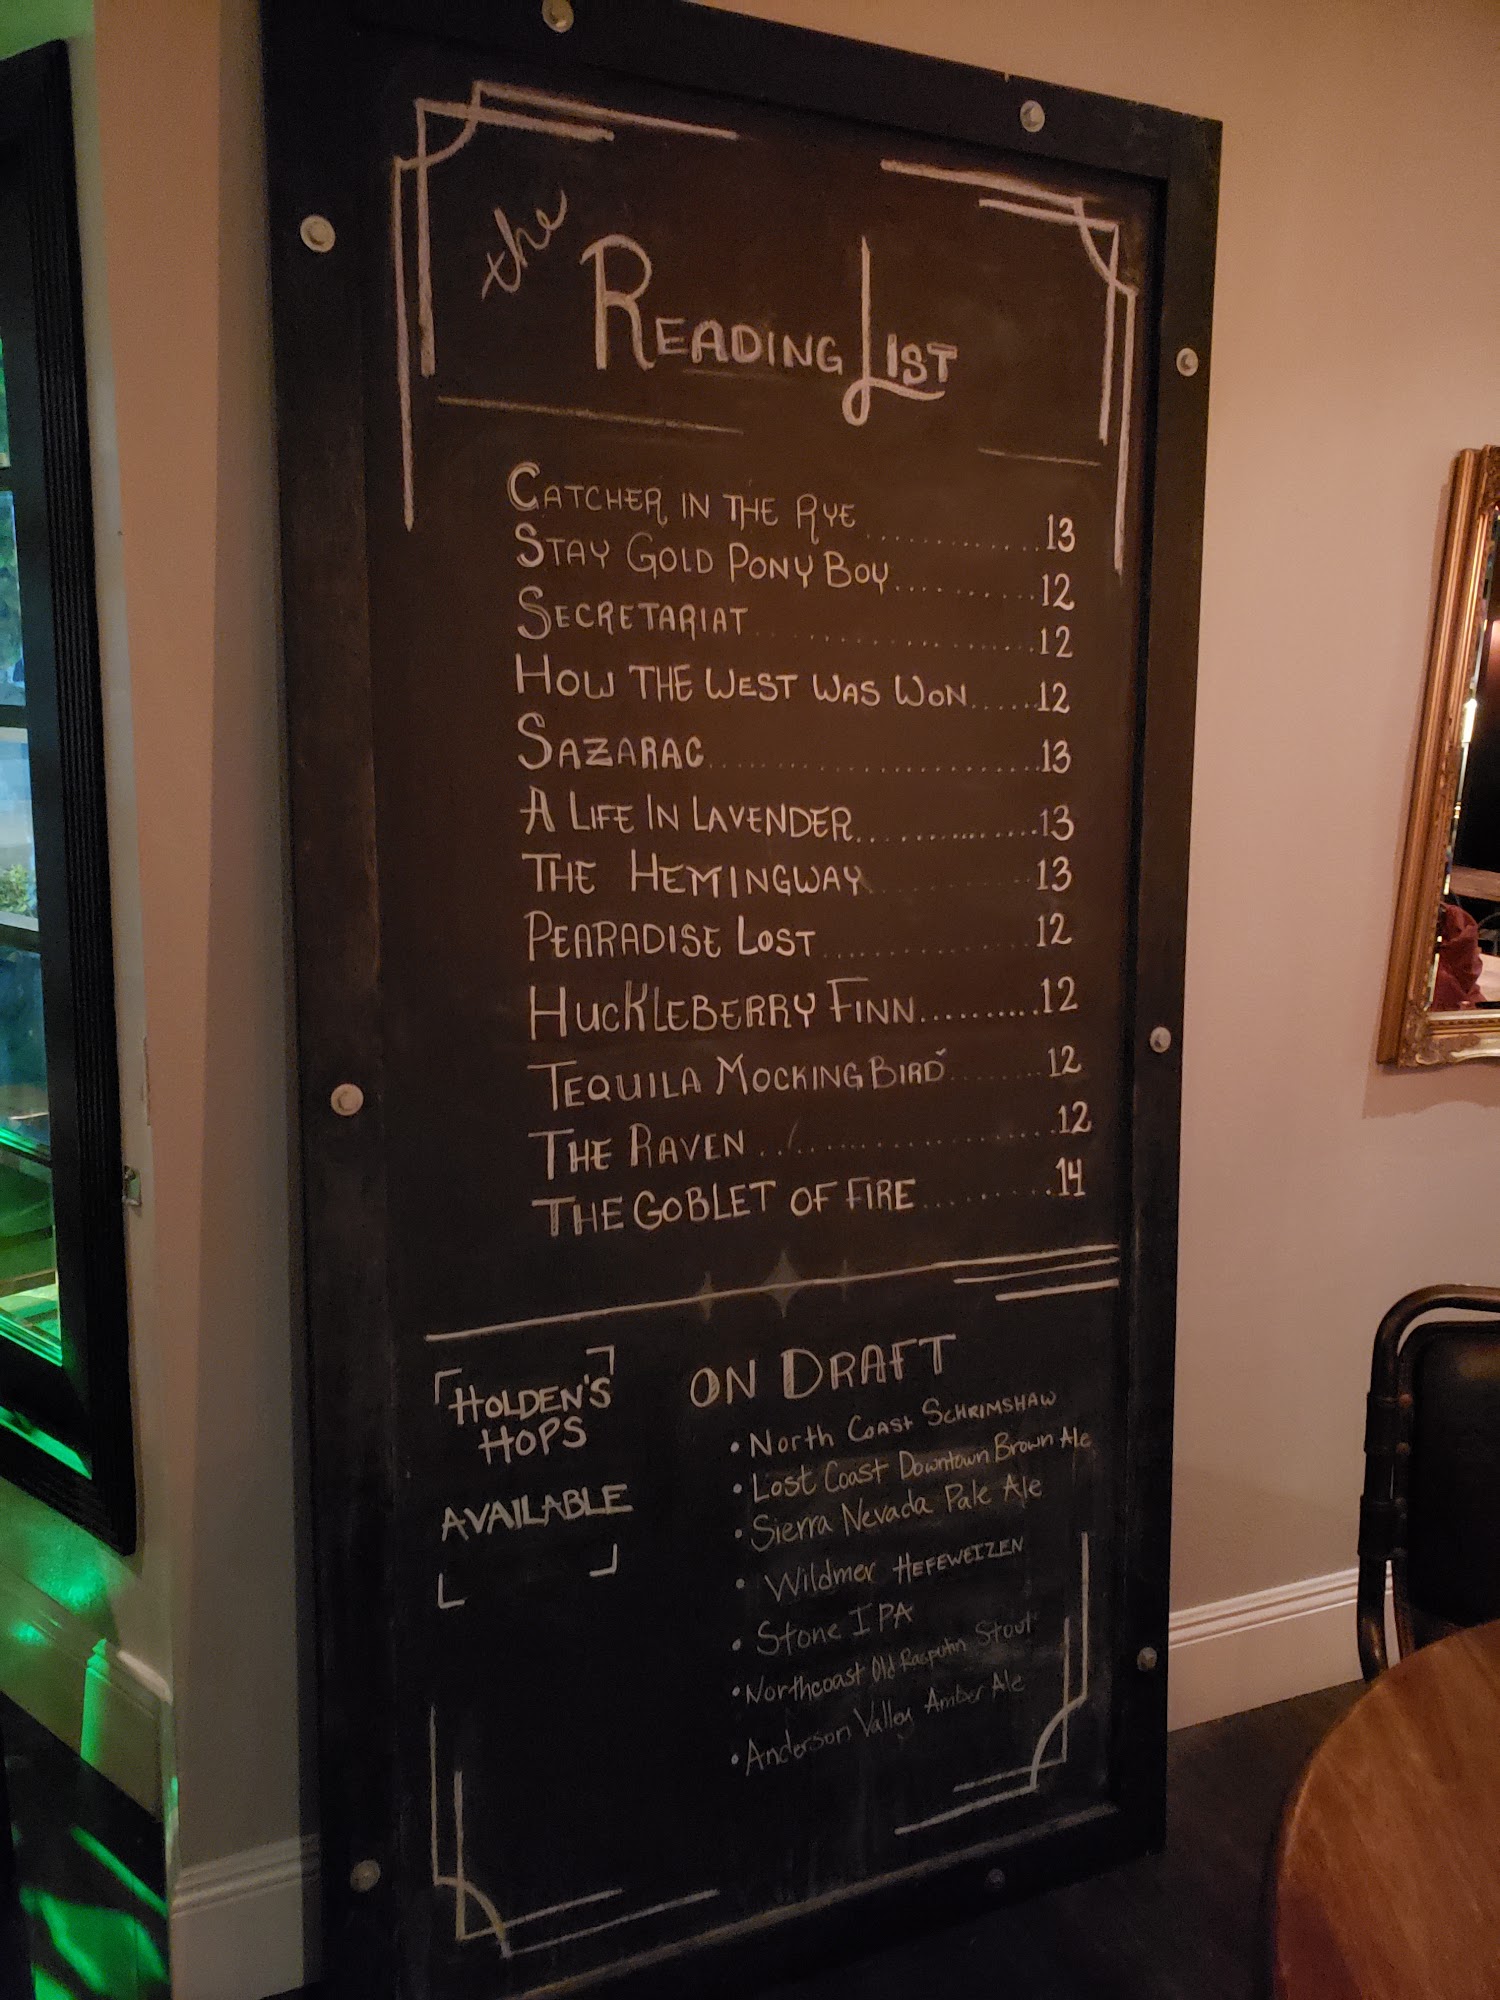 the
READING LIST
CATCHER IN THE RYE............13
STAY GOLD PONY BOY..........12
SECRETARIAT...................12
HOW THE WEST WAS WON......12
SAZARAC......................13
A LIFE IN LAVENDER..............13
THE HEMINGWAY..........13
PEARADISE LOST..............12
HUCKLEBERRY FINN..........12
TEQUILA MOCKING BIRD........12
THE RAVEN...................12
THE GOBLET OF FIRE.........14
HOLDEN'S
HOPS
AVAILABLE
ON DRAFT
• North Coast SCHRIMSHAW
• Lost Coast Downtown Brown Ale
• Sierra Nevada Pale Ale
• Wildmer HEFEWEIZEN
• Stone IPA
• Northcoast Old Rasputin Stout
• Anderson Valley Amber Ale